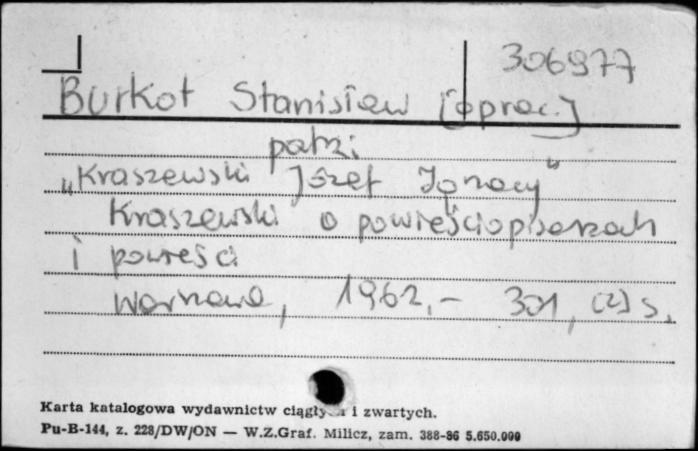 306977
Burkot Stanisław [oprac.]
patrz
"Kraszewski Józef Ignacy"
Kraszewski o powieściopisarzach
i powieści
Warszawa, 1962,- 301, (2) s.
Karta katalogowa wydawnictw ciągłych i zwartych.
Pu-B-144, z. 228/DW/ON — W.Z.Graf. Milicz, zam. 388-86 5.650.000